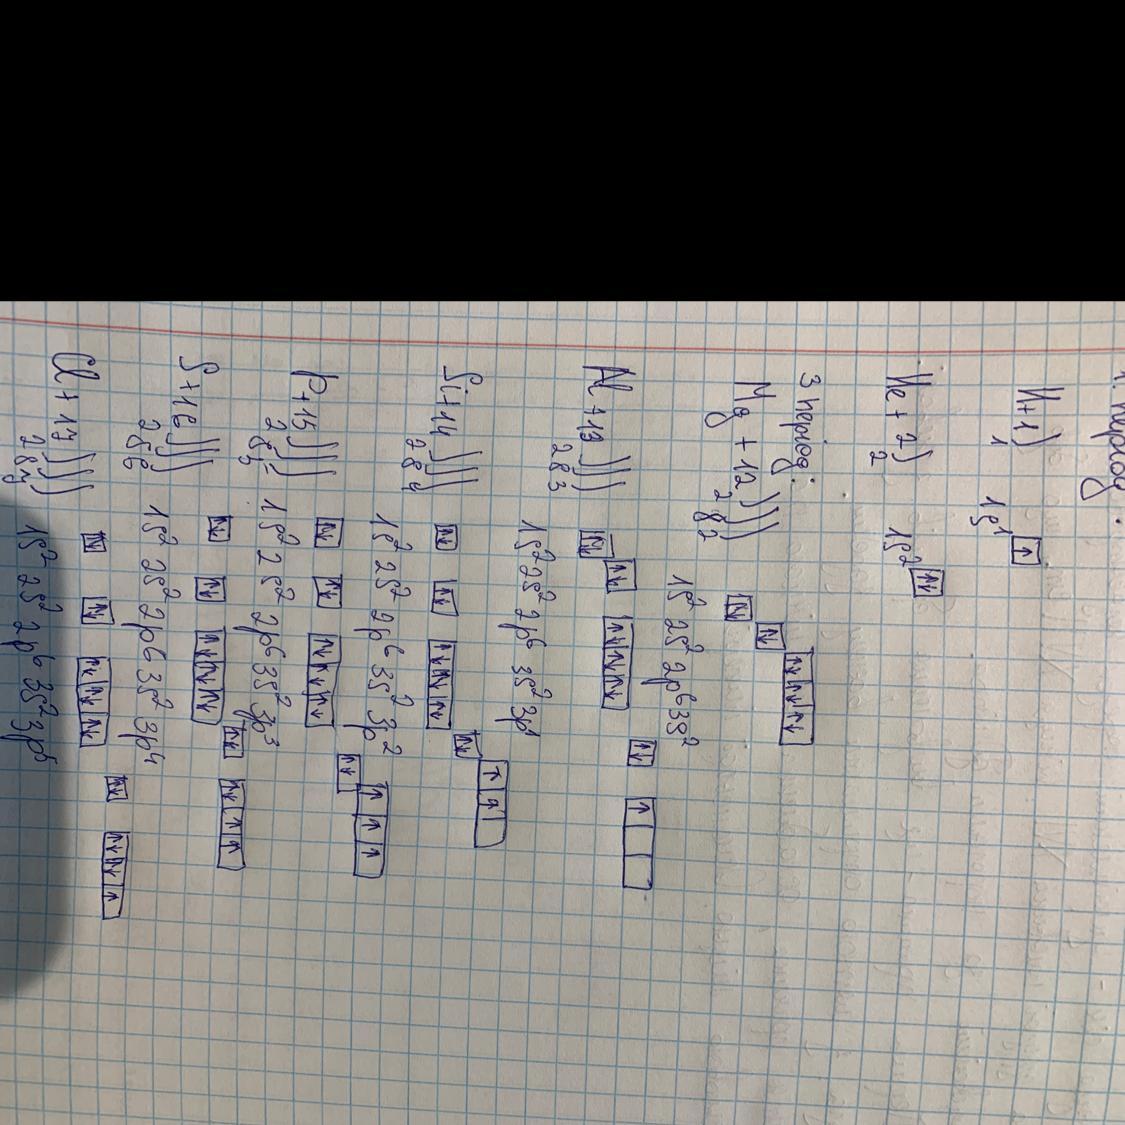 1. період:
H+1)
1
1s¹ ↑
He+2)
2
1s² ↑↓
3 період:
Mg+12)))
2 8 2
1s² 2s² 2p6 3s²
↑↓ ↑↓ ↑↓ ↑↓ ↑↓
Al+13)))
2 8 3
1s² 2s² 2p6 3s² 3p1
↑↓ ↑↓ ↑↓ ↑↓ ↑↓ ↑↓ ↑
Si+14)))
2 8 4
1s² 2s² 2p6 3s² 3p²
↑↓ ↑↓ ↑↓ ↑↓ ↑↓ ↑↓ ↑ ↑
P+15)))
2 8 5
1s² 2s² 2p6 3s² 3p³
↑↓ ↑↓ ↑↓ ↑↓ ↑↓ ↑↓ ↑ ↑ ↑
S+16)))
2 8 6
1s² 2s² 2p6 3s² 3p4
↑↓ ↑↓ ↑↓ ↑↓ ↑↓ ↑↓ ↑↓ ↑ ↑
Cl+17)))
2 8 7
1s² 2s² 2p6 3s² 3p5
↑↓ ↑↓ ↑↓ ↑↓ ↑↓ ↑↓ ↑↓ ↑↓ ↑